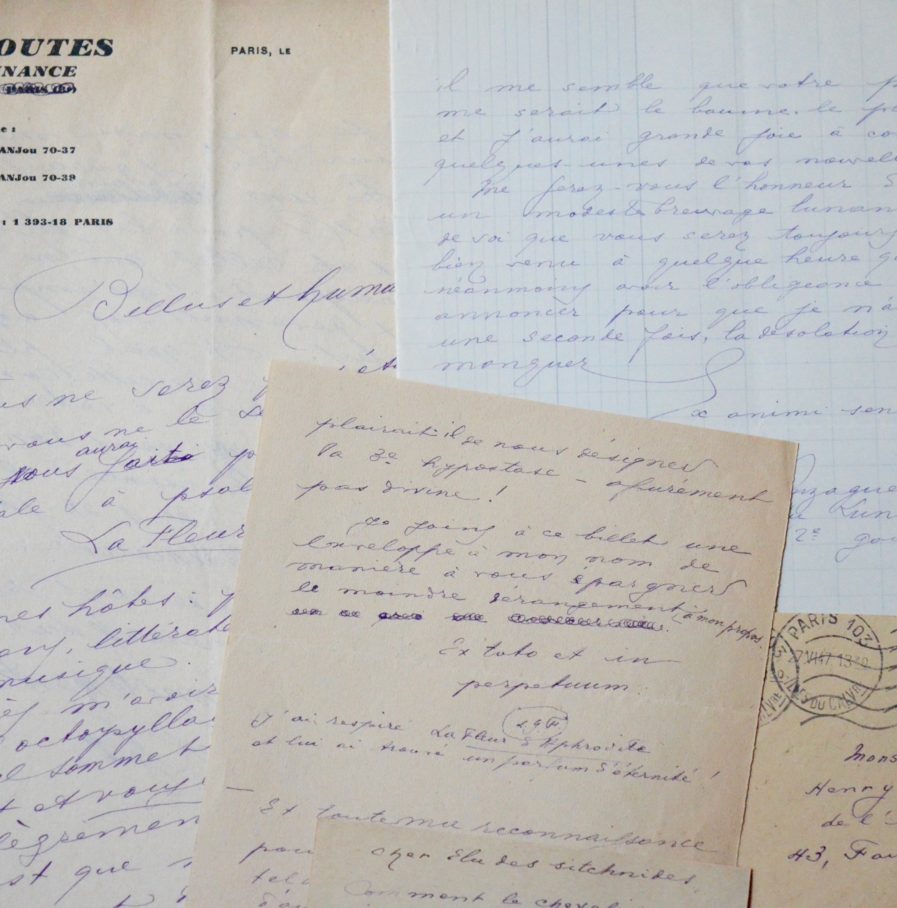 OUTES
NANCE
PARIS, LE
ANJou 70-37
ANJou 70-39
: 1 393-18 PARIS
Bellus et huma
ne serez
vous ne le
vous aurai fait
à
La Fleur
mes hôtes :
littérat
musique.
m'avoir
octopylla
sommet
et vous
st que
il me semble que votre p
me serait le baume, le p
et j'aurai grande joie à co
quelques-unes de vos nouvel
Me ferez-vous l'honneur d
un modeste breuvage lunan
de soi que vous serez toujours
bien venu à quelque heure q
néanmoins avoir l'obligeance
annoncer pour que je n'a
une seconde fois, la désolation
manquer
Ex animi sen
nzague
2e
plairait-il de nous désigner
la 3e hypostase - apurément
pas divine !
Je joins à ce billet une
enveloppe à mon nom de
manière à vous épargner
le moindre dérangement à mon propos.
Ex toto et in
perpetuum
L.G.F.
J'ai respiré La Fleur d'Aphrodite
et lui ai trouvé un parfum d'éternité !
Et toute ma reconnaissance
pou
cher Élu des
Comment le cheval
PARIS 103
13
Mons
Henry
de l'
43, Fau